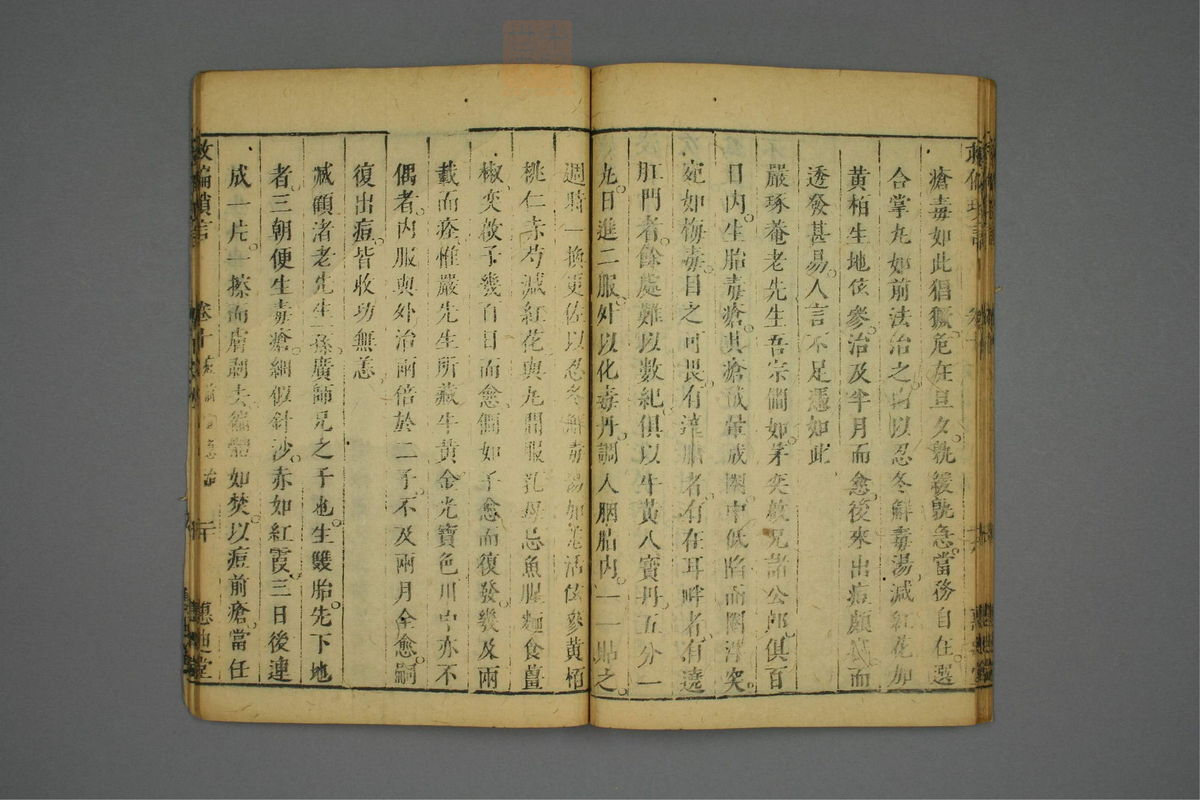 瘡毒如此猖獗危在旦夕孰緩孰急當務自在選
合掌丸如前法治之內以忍冬解毒湯減紅花加
黃柏生地玄參治及半月而愈後來出痘頗 而
透發甚易人言不足憑如此
嚴琢菴老先生吾宗 如茅奕敘兄諸公郎俱百
日內生胎毒瘡其瘡 暈成圈中低陷而圈浮突
宛如梅毒目之可畏有 者有在耳畔者有遶
肛門者餘處難以數紀俱以牛黃八寶丹五分一
丸日進二服外以化毒丹調人胭脂內一一貼之
週時一換更佐以忍冬解毒湯加 活玄參黃柏
桃仁赤芍減紅花與丸間服乳母忌魚腥麵食薑
椒奕敘子幾百日而愈 如子愈而復發幾及兩
載而痊惟嚴先生所藏牛黃金光寶色川中亦不
偶者內服與外治兩倍於二子不及兩月全愈嗣
復出痘皆收功無恙
減顧渚老先生 孫廣師兄之子也生雙胎先下地
者三朝便生毒瘡細假針沙赤如紅霞三日後連
成一片一擦而膚剝去徧體如焚以痘前瘡當任
救偏瑣言
卷十
惠迪堂